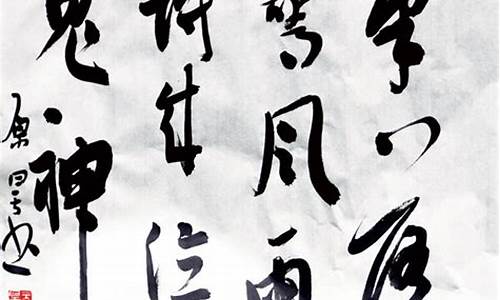 笔落
驚风雨
诗成泣
鬼神